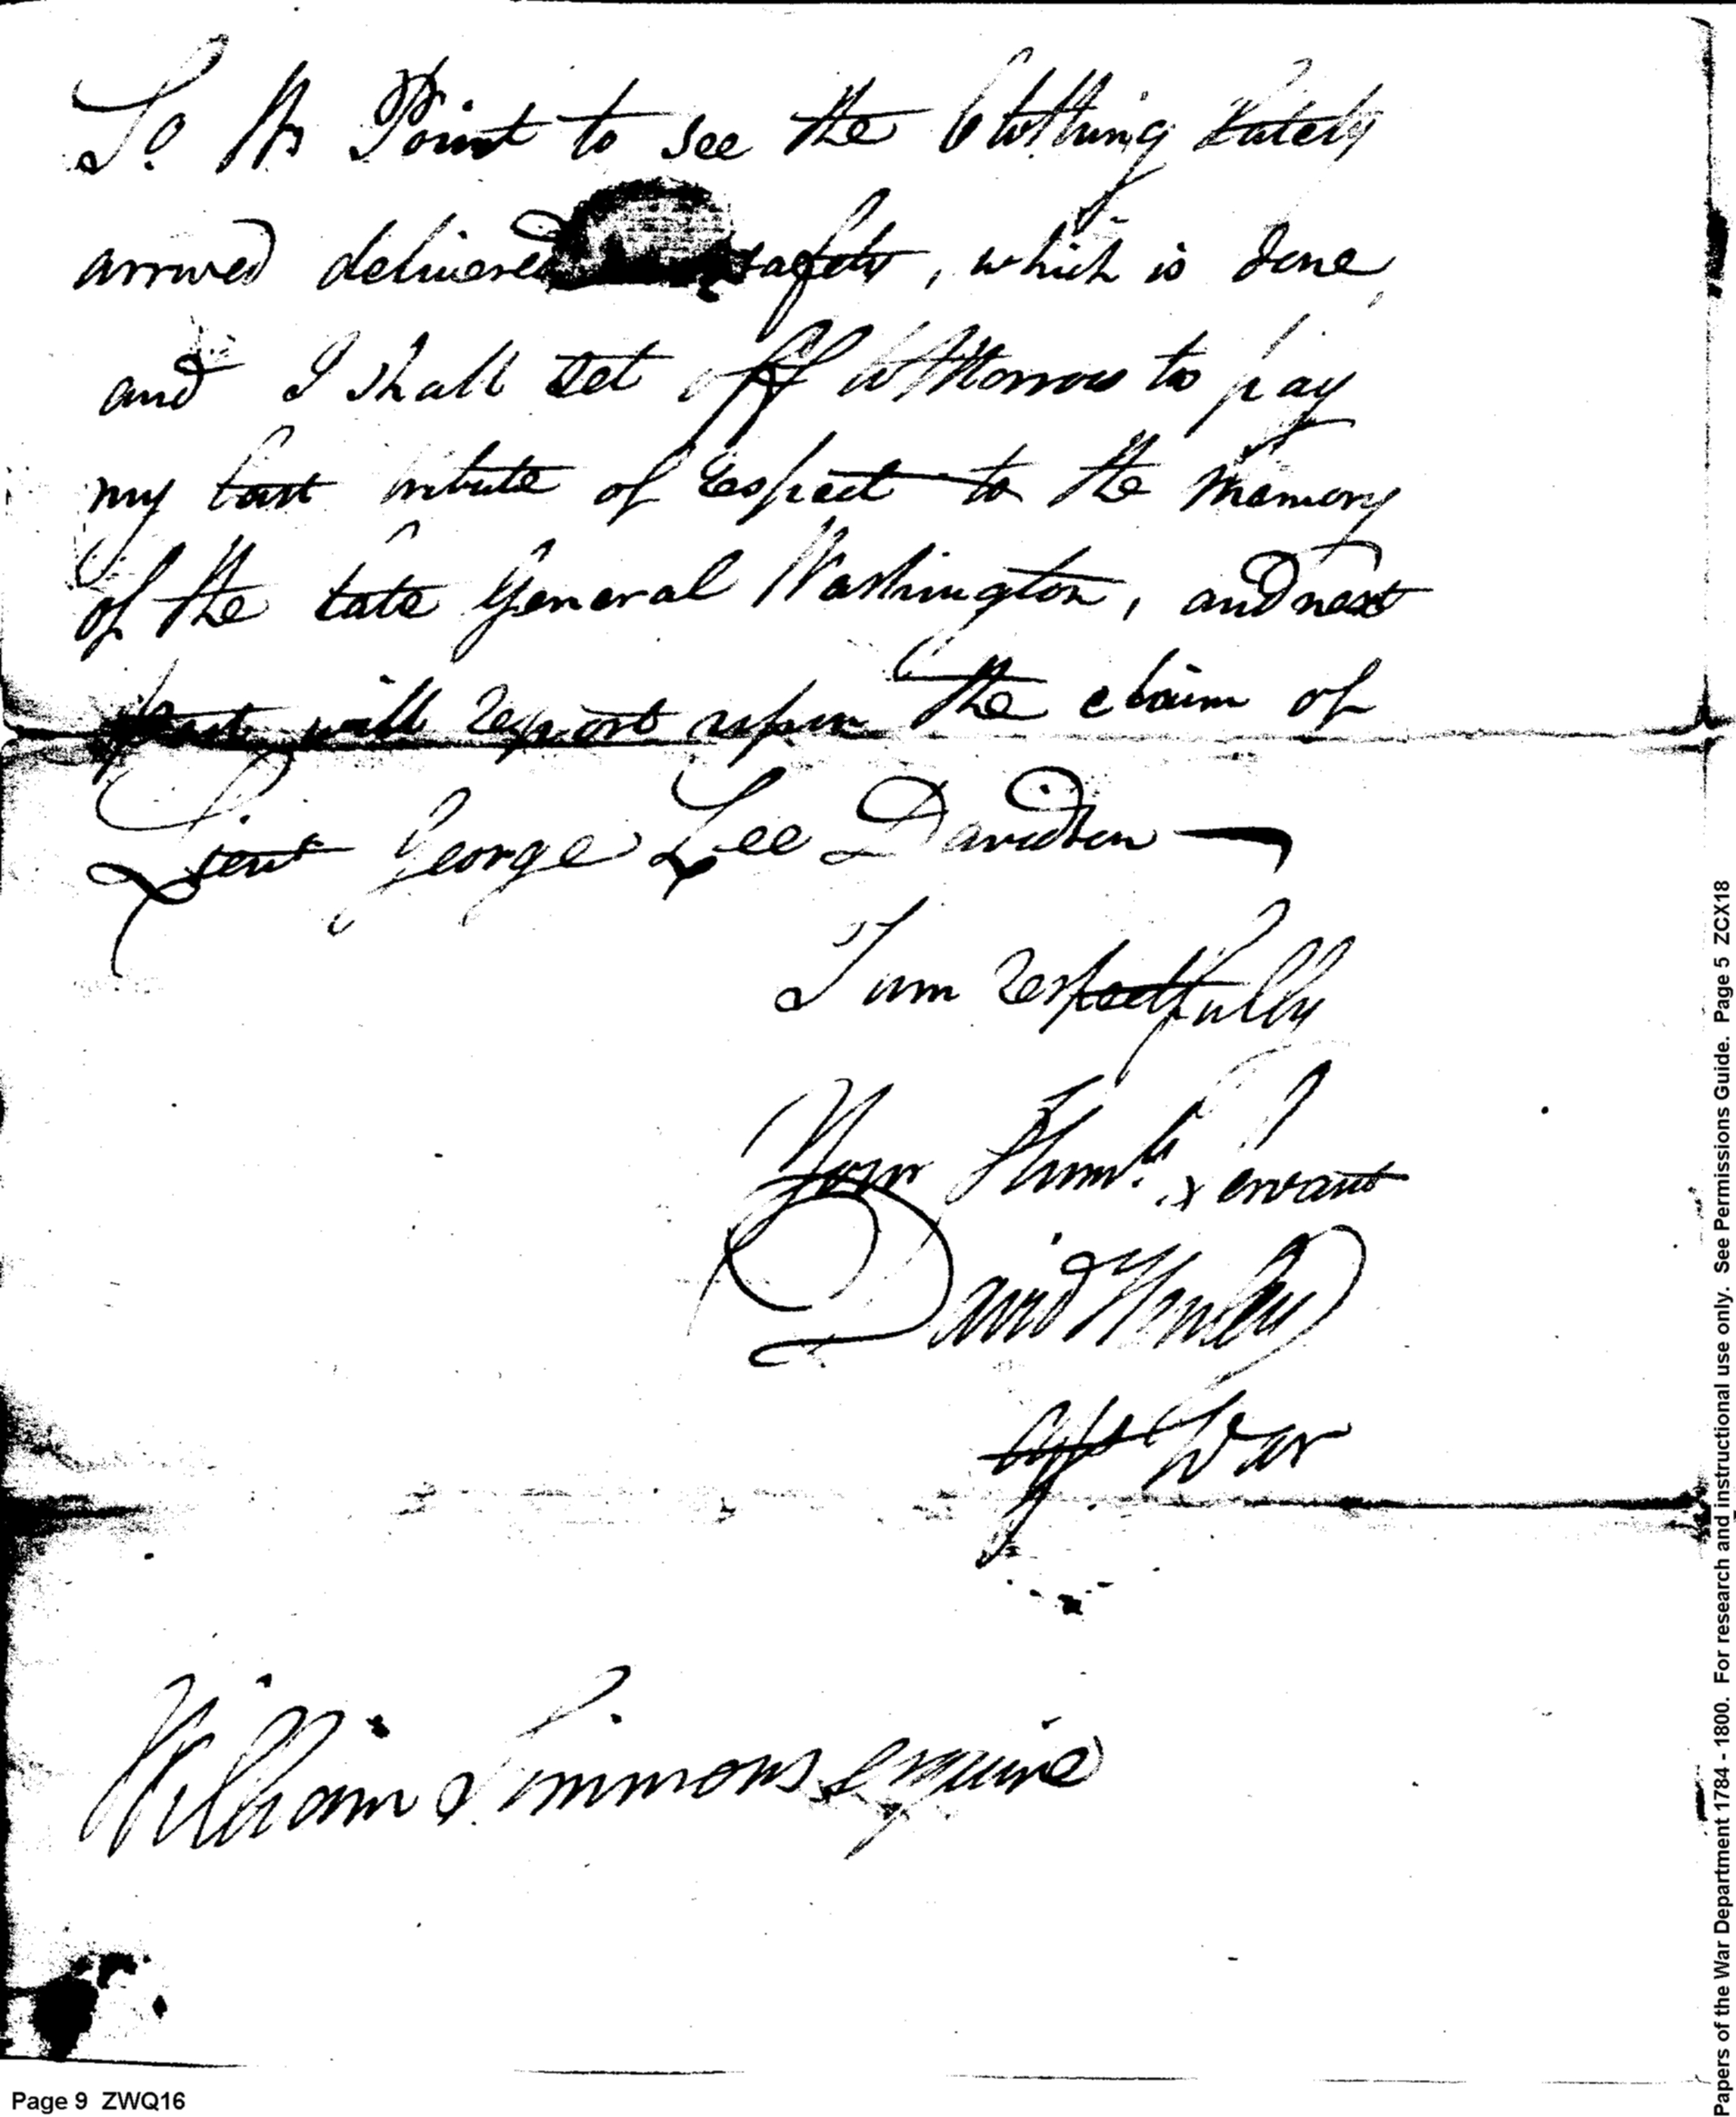 So Ws Point to see the Clothing lately
arrived delivered safely, which is done,
and I shall set off to Morrow to pay
my last tribute of respect to the memory
of the late General Washington, and next
post will report upon the claim of
Lieut George Lee Davidson —
I am respectfully
Your Humle. Servant
David Henley
Agt War
William Simmons Esquire
Page 9 ZWQ16
Papers of the War Department 1784 - 1800. For research and instructional use only. See Permissions Guide. Page 5 ZCX18